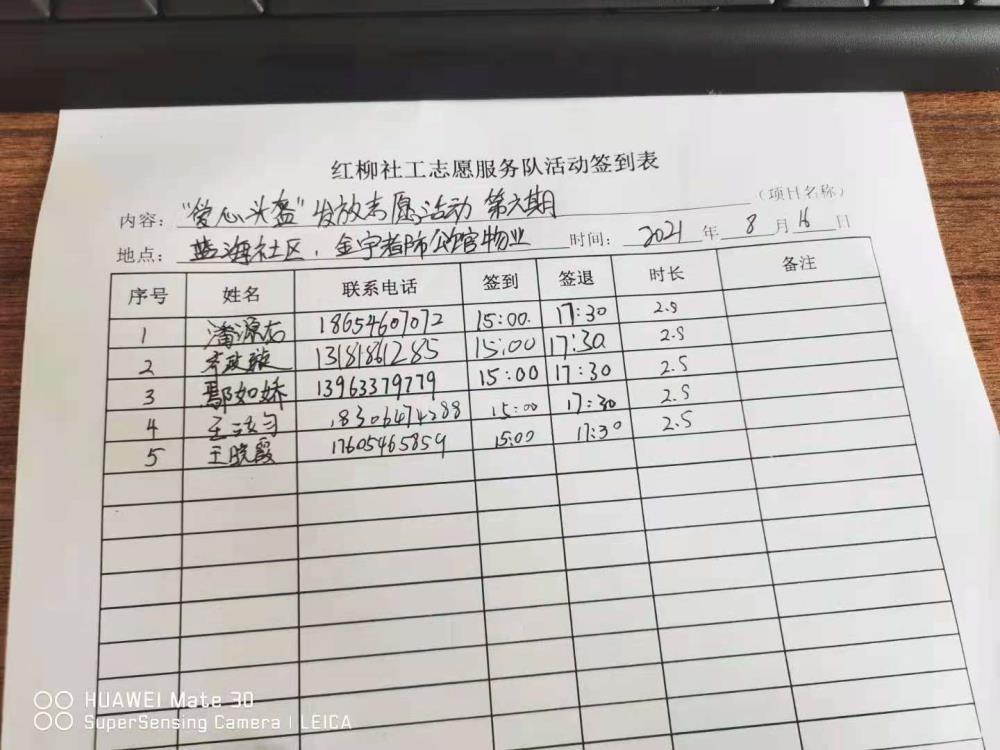 红柳社工志愿服务队活动签到表
内容：“爱心头盔”发放志愿活动 第六期（项目名称）
地点：蓝海社区，金宇都市公馆物业 时间：2021年8月16日
序号 姓名 联系电话 签到 签退 时长 备注
1 潘源 18654607072 15:00. 17:30 2.5
2 13181861285 15:00 17:30 2.5
3 鄢如娇 13963379779 15:00 17:30 2.5
4 王 18306474288 15:00 17:30 2.5
5 王晓霞 17605465859 15:00 17:30 2.5
HUAWEI Mate 30
SuperSensing Camera | LEICA